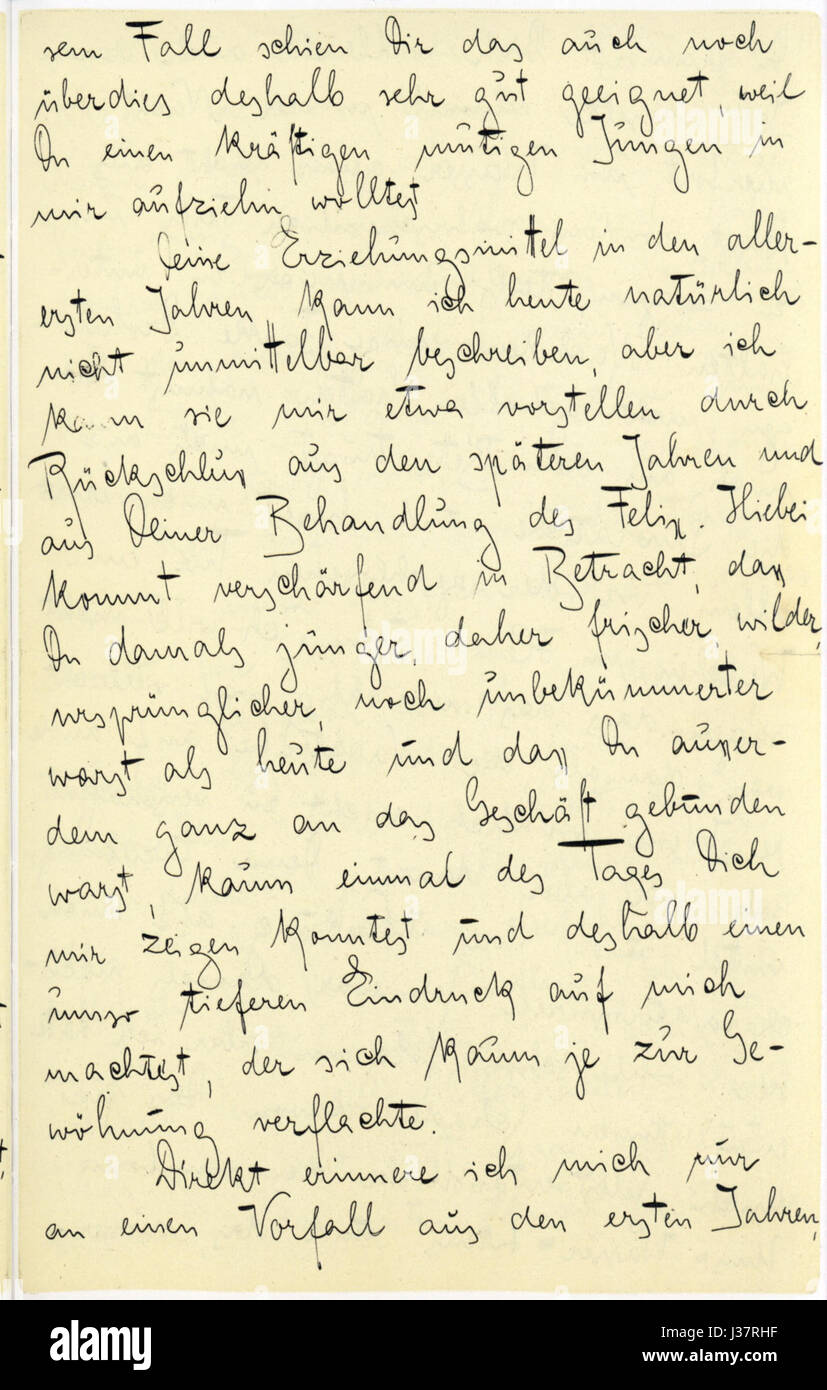 sem Fall schien Dir das auch noch
überdies deshalb sehr gut geeignet, weil
Du einen kräftigen mutigen Jungen in
mir aufziehn wolltest
Deine Erziehungsmittel in den aller-
ersten Jahren kann ich heute natürlich
nicht unmittelbar beschreiben, aber ich
kann sie mir etwa vorstellen durch
Rückschluss aus den späteren Jahren und
aus Deiner Behandlung des Felix. Hiebei
kommt verschärfend in Betracht, dass
Du damals jünger, daher frischer, wilder,
ursprünglicher, noch unbekümmerter
warst als heute und dass Du ausser-
dem ganz an das Geschäft gebunden
warst, kaum einmal des Tages Dich
mir zeigen konntest und deshalb einen
umso tieferen Eindruck auf mich
machtest, der sich kaum je zur Ge-
wöhnung verflachte.
Direkt erinnere ich mich nur
an einen Vorfall aus den ersten Jahren,
alamy
Image ID: J37RHF
www.alamy.com